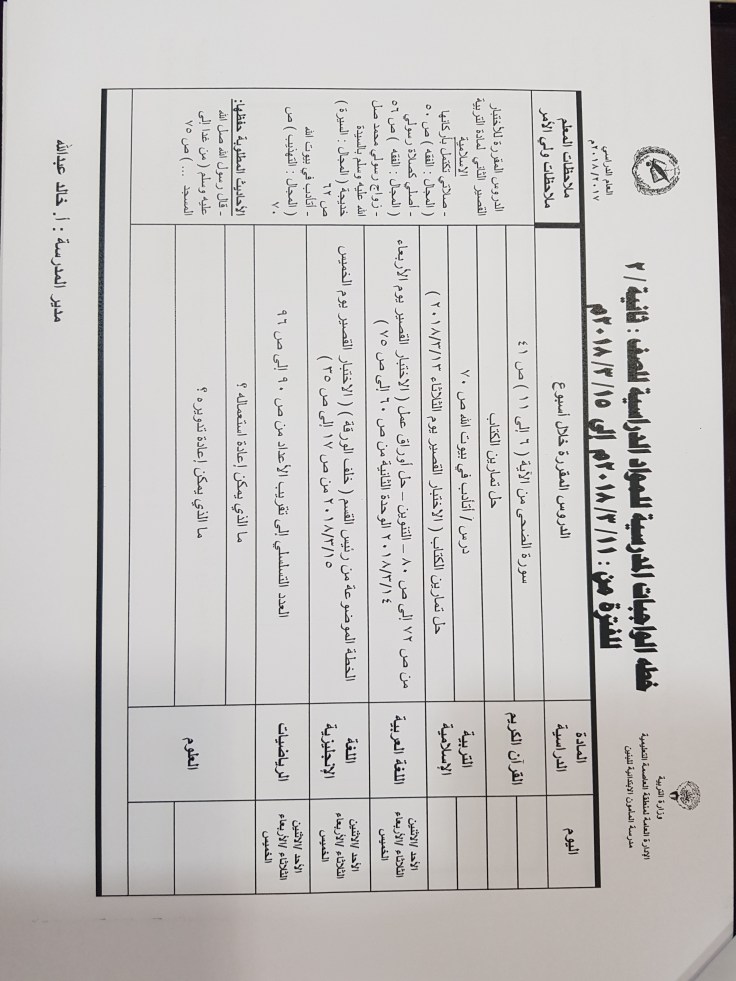 وزارة التربية
الإدارة العامة لمنطقة العاصمة التعليمية
مدرسة المأمون الابتدائية للبنين
العام الدراسي
٢٠١٨/٢٠١٧م
خطة الواجبات المدرسية للمواد الدراسية للصف : ثانية / ٢
للفترة من : ٢٠١٨/٣/١١م إلى ٢٠١٨/٣/١٥م
اليوم
المادة الدراسية
الدروس المقررة خلال أسبوع
ملاحظات المعلم
ملاحظات ولي الأمر
القرآن الكريم
سورة الضحى من الآية ( ٦ إلى ١١ ) ص ٤١
حل تمارين الكتاب
التربية الإسلامية
درس / أتأدب في بيوت الله ص ٧٠
حل تمارين الكتاب ( الاختبار القصير يوم الثلاثاء ٢٠١٨/٣/١٣ )
الأحد /الاثنين
الثلاثاء /الأربعاء
الخميس
اللغة العربية
من ص ٧٢ إلى ص ٨٠ – التنوين – حل أوراق عمل ( الاختبار القصير يوم الأربعاء
٢٠١٨/٣/١٤ الوحدة الثانية من ص ٦٠ إلى ص ٧٥ )
الأحد /الاثنين
الثلاثاء /الأربعاء
الخميس
اللغة الإنجليزية
الخطة الموضوعة من رئيس القسم ( خلف الورقة ) ( الاختبار القصير يوم الخميس
٢٠١٨/٣/١٥ من ص ١٧ إلى ص ٣٥ )
الأحد /الاثنين
الثلاثاء /الأربعاء
الخميس
الرياضيات
العدد التسلسلي إلى تقريب الأعداد من ص ٩٠ إلى ص ٩٦
العلوم
ما الذي يمكن إعادة استعماله ؟
ما الذي يمكن إعادة تدويره ؟
الدروس المقررة للاختبار
القصير الثاني لمادة التربية
الإسلامية
- صلاتي تكتمل بأركانها
( المجال : الفقه ) ص ٥٠
- أصلي كصلاة رسولي
( المجال : الفقه ) ص ٥٦
- زواج رسولي محمد صل
الله عليه وسلم بالسيدة
خديجة ( المجال : السيرة )
ص ٦٢
- أتأدب في بيوت الله
( المجال : التهذيب ) ص
٧٠
الأحاديث المطلوبة حفظها:
- قال رسول الله صل الله
عليه وسلم ( من غدا إلى
المسجد ... ) ص ٧٥
مدير المدرسة : أ. خالد عبدالله